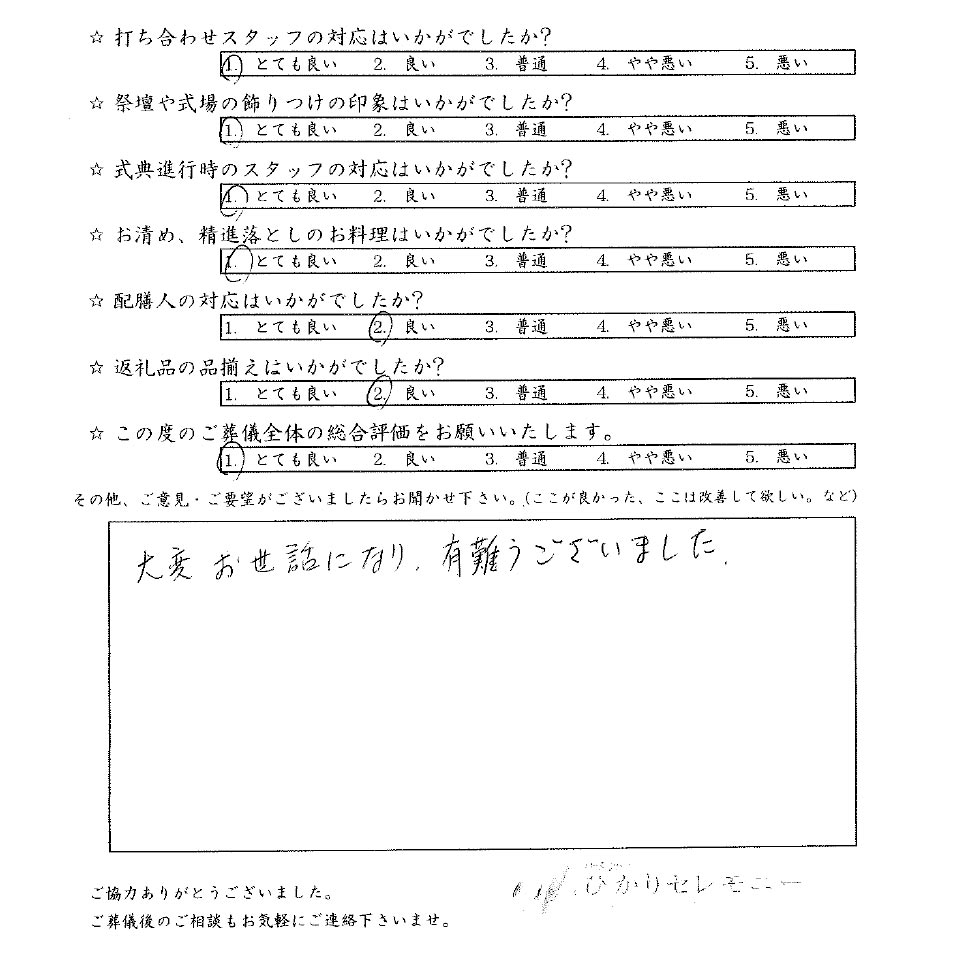 ☆ 打ち合わせスタッフの対応はいかがでしたか?
1. とても良い 2. 良い 3. 普通 4. やや悪い 5. 悪い
☆ 祭壇や式場の飾りつけの印象はいかがでしたか?
1. とても良い 2. 良い 3. 普通 4. やや悪い 5. 悪い
☆ 式典進行時のスタッフの対応はいかがでしたか?
1. とても良い 2. 良い 3. 普通 4. やや悪い 5. 悪い
☆ お清め、精進落としのお料理はいかがでしたか?
1. とても良い 2. 良い 3. 普通 4. やや悪い 5. 悪い
☆ 配膳人の対応はいかがでしたか?
1. とても良い 2. 良い 3. 普通 4. やや悪い 5. 悪い
☆ 返礼品の品揃えはいかがでしたか?
1. とても良い 2. 良い 3. 普通 4. やや悪い 5. 悪い
☆ この度のご葬儀全体の総合評価をお願いいたします。
1. とても良い 2. 良い 3. 普通 4. やや悪い 5. 悪い
その他、ご意見・ご要望がございましたらお聞かせ下さい。(ここが良かった、ここは改善して欲しい。など)
大変お世話になり、有難うございました。
ひかりセレモニー
ご協力ありがとうございました。
ご葬儀後のご相談もお気軽にご連絡下さいませ。